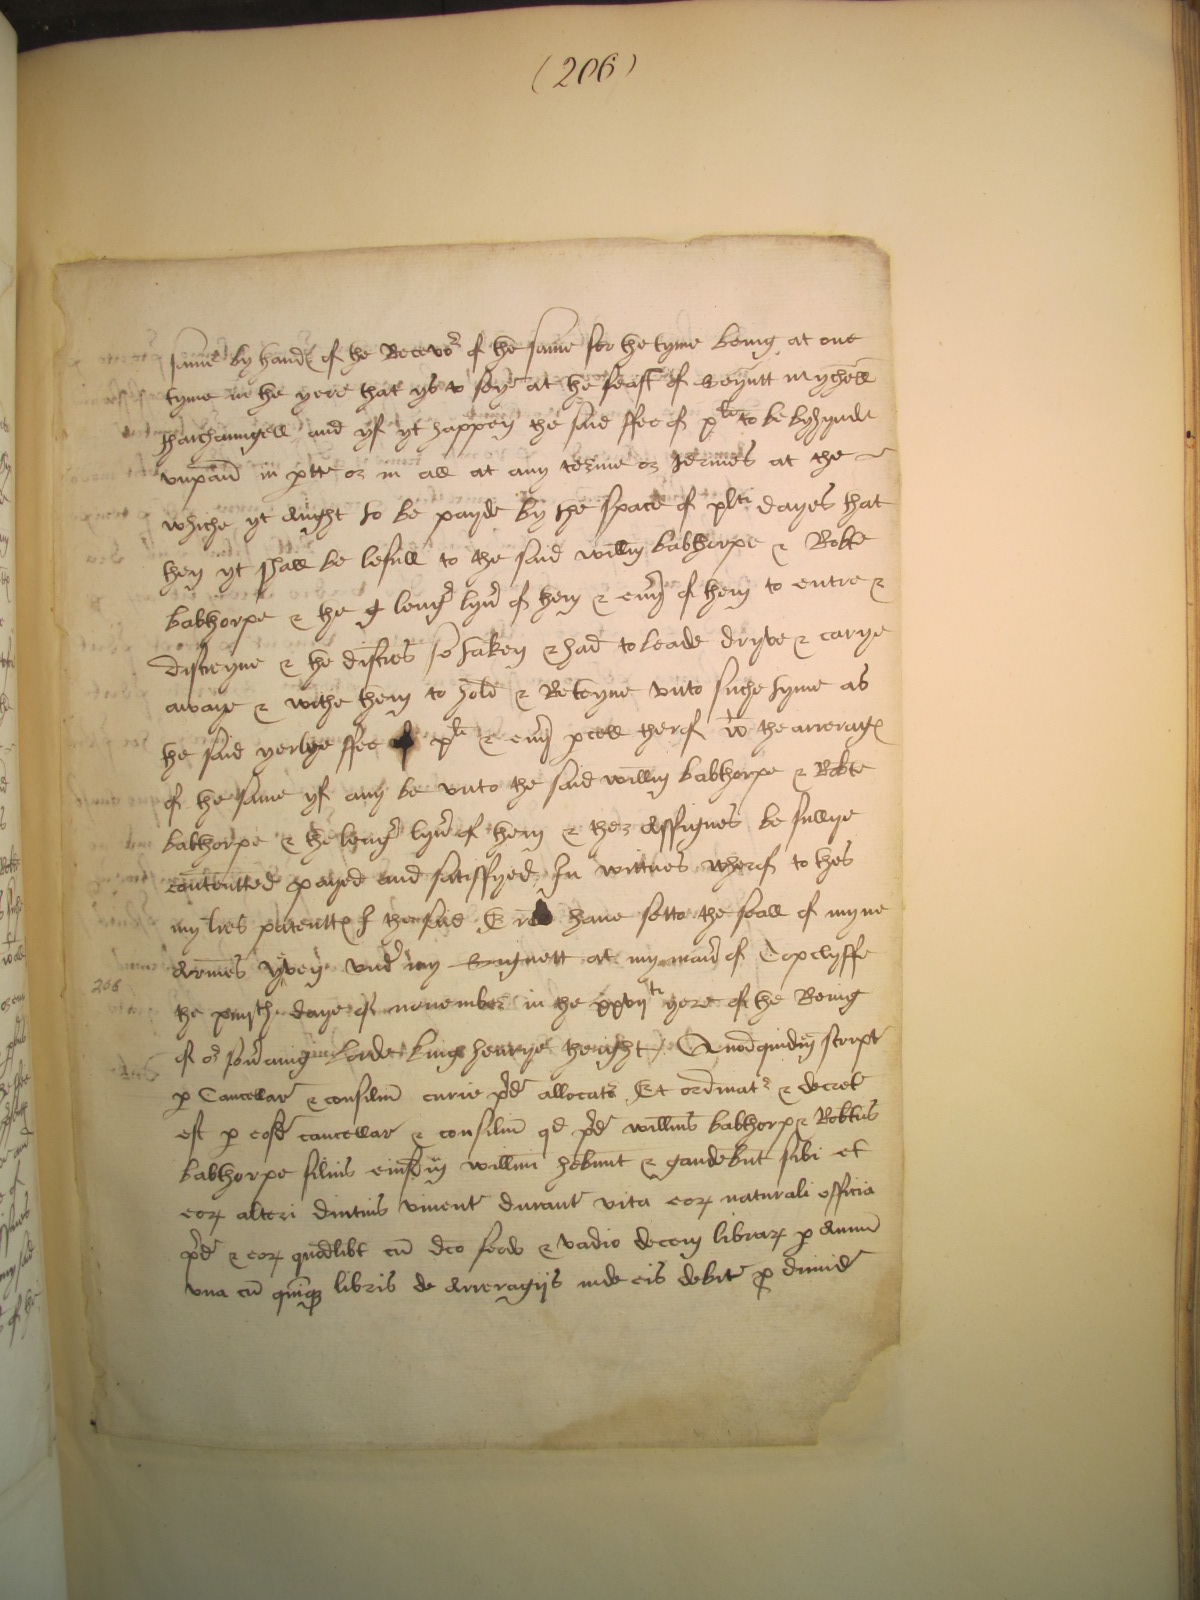 (206)
same by hand of the Recevor of the same for the tyme being at one
tyme in the yere that ys to sey at the feast of Seyntt Mychell
tharchaungell and yf yt happen the said ffee of xli to be byhynde
unpaid in parte or in all at any terme or termes at the
whiche yt aught to be payde by the space of xlti dayes that
then yt shall be lefull to the said Willm Babthorpe & Robte
Babthorpe & the lenger lyver of them & every of them to entre &
distreyne & the distres so taken & had to leade dryve & carye
awaye & withe them to hold & Reteyne unto suche tyme as
the said yerlye ffee of xli & every parcell therof wt the arrerages
of the same yf any be unto the said Willm Babthorpe & Robte
Babthorpe & the lenger lyver of them & ther assignes be fullye
contentted payed and satisffyed In wittnes wherof to thes
my lres patentte I the said Erle have setto the seall of myne
Armes Yeven under my Signett at my maner of Topclyffe
206
the daye of november in the xxvijti yere of the Reing
of or soveraing Lorde king henrye theight Quodquidem script
per Cancellar & consilium curie pred allocatr Et ordinatr & decret
est per eosd cancellar & consilium qd pred Willms Babthorp & Robtus
Babthorpe filius eiusdem Willmi hebunt & gaudebunt sibi et
eor alteri diutius vivent durant vita eor naturali officia
pred & eor quodlibt cum dco feodo & vadio decem librar per Annum
una cum quinque libris de Arreragijs inde eis debit pro dimid